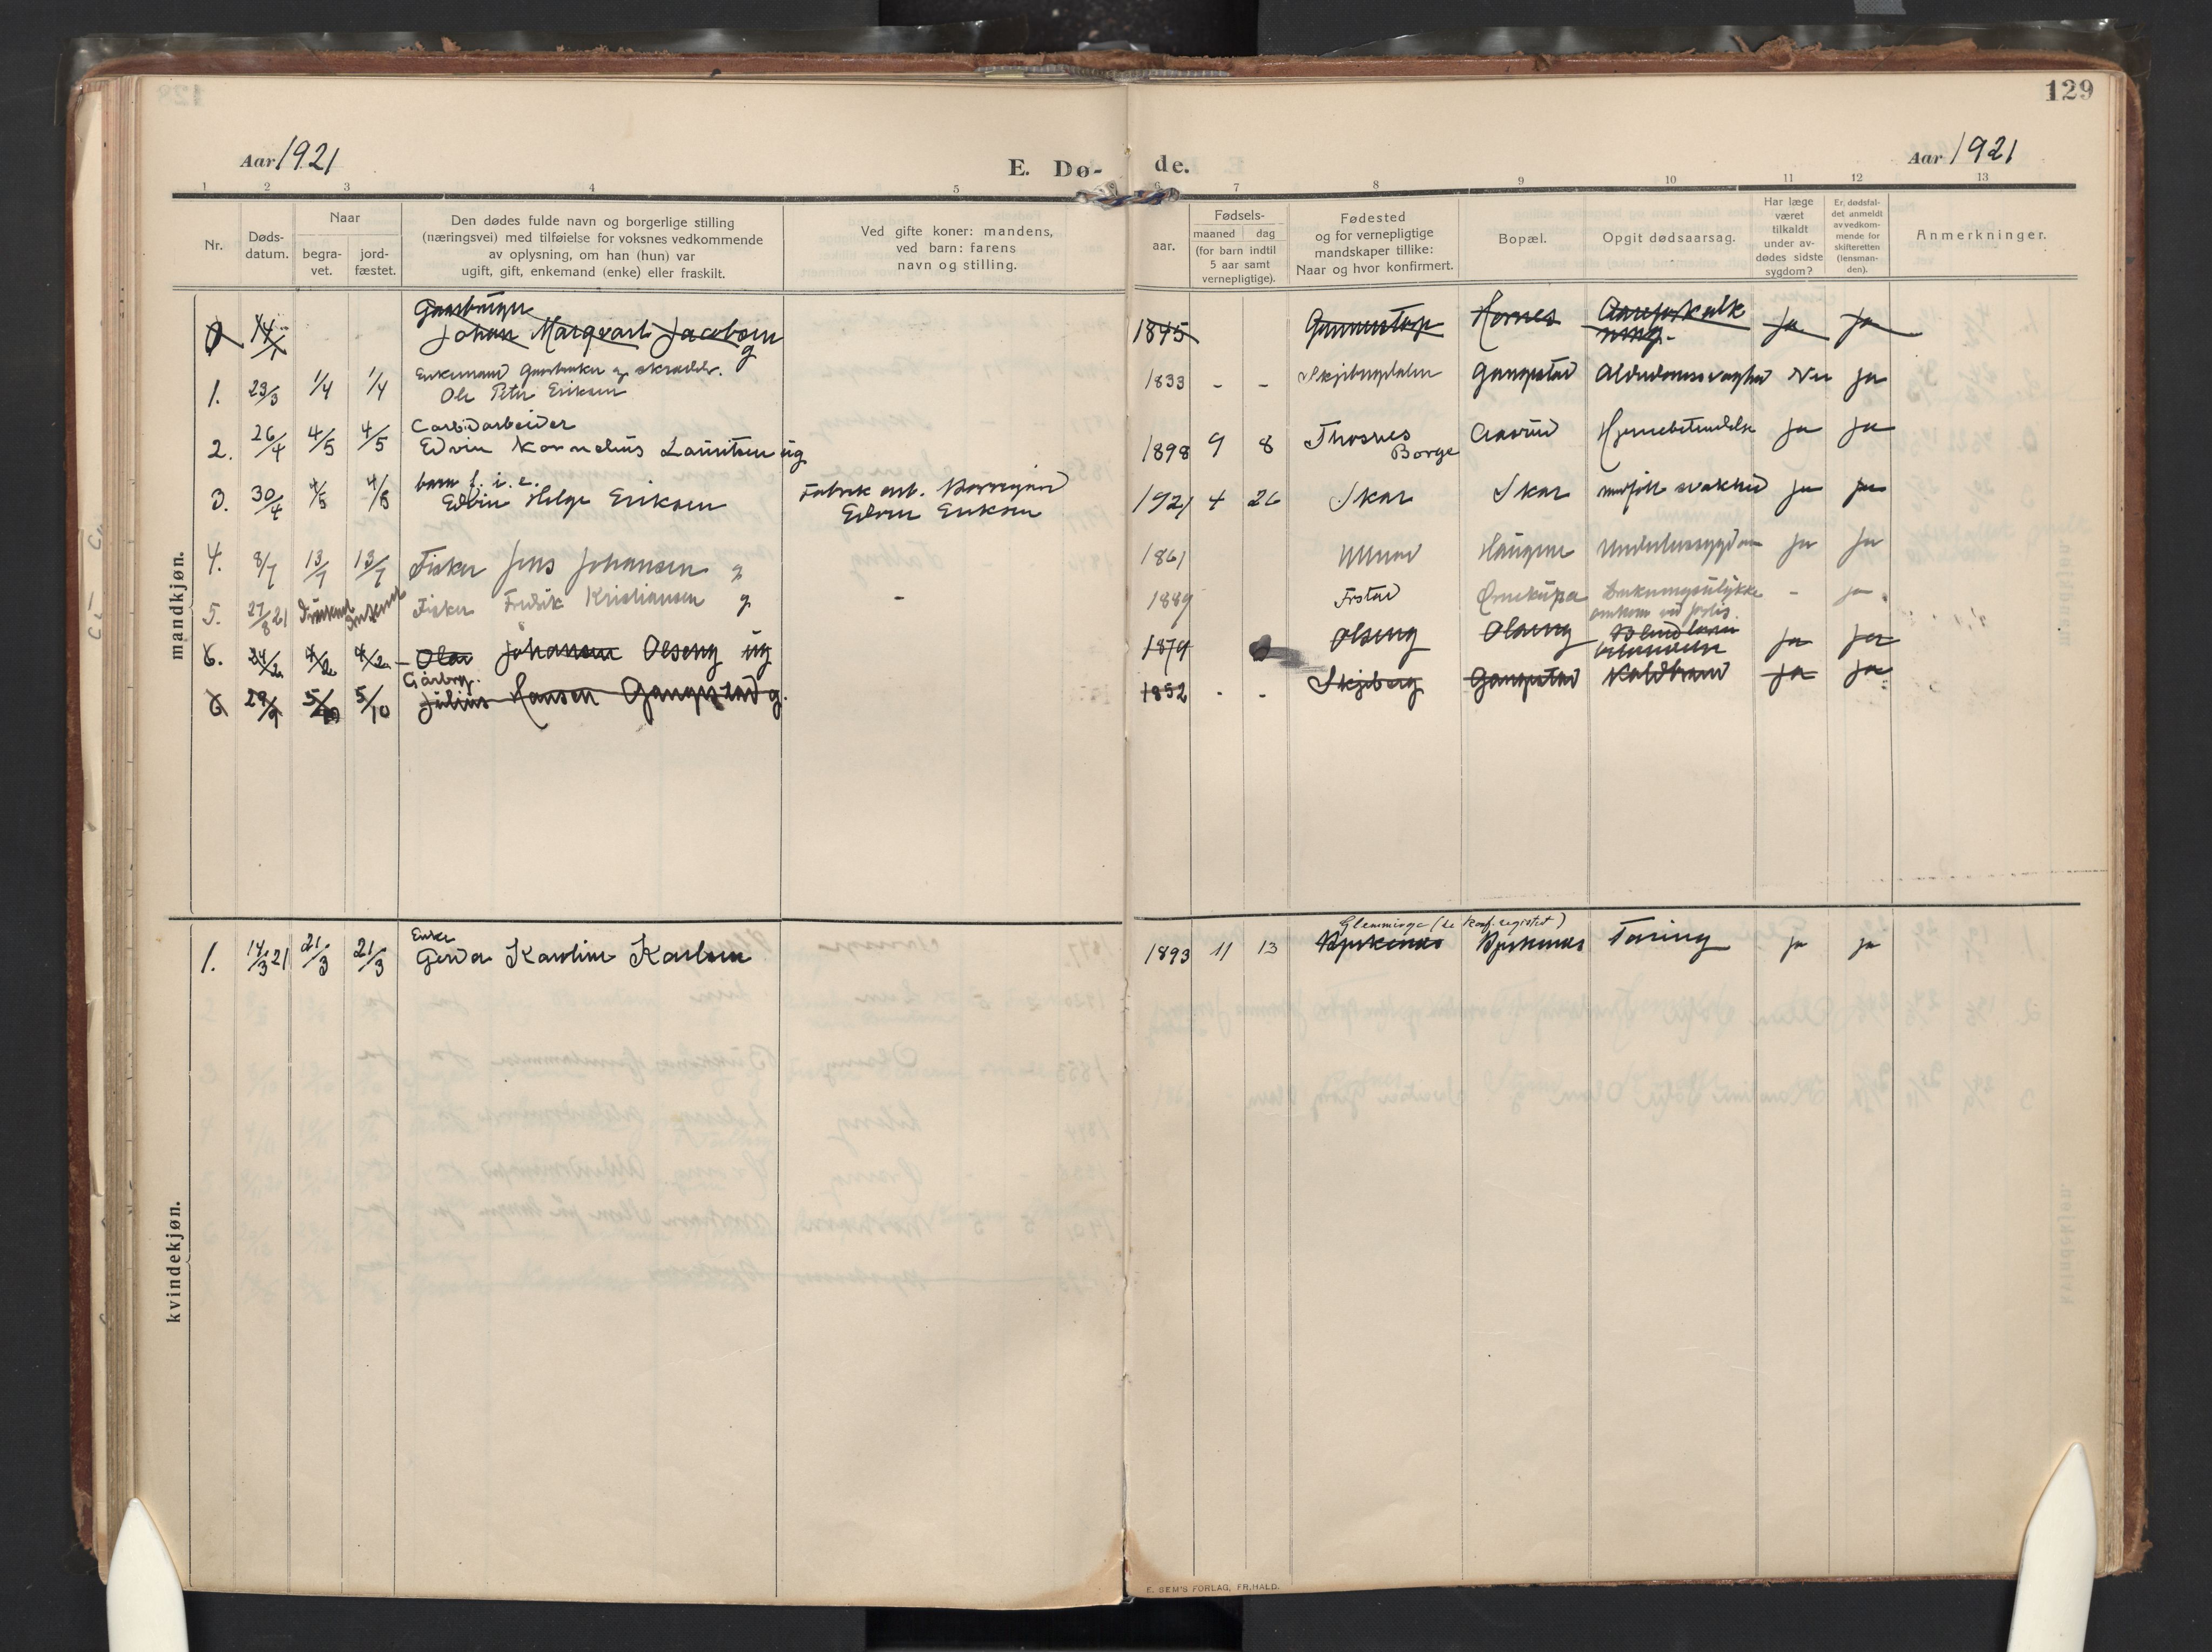 129
Aar 1921
E. Dø- de.
Aar 1921
1 2 3 4 5 6 7 8 9 10 11 12 13
Nr.
Døds-
datum.
Naar
begra-
vet.
jord-
fæstet.
Den dødes fulde navn og borgerlige stilling
(næringsvei) med tilføielse for voksnes vedkommende
av oplysning, om han (hun) var
ugift, gift, enkemand (enke) eller fraskilt.
Ved gifte koner: mandens,
ved barn: farens
navn og stilling.
Fødsels-
aar.
maaned dag
(for barn indtil
5 aar samt
vernepligtige).
Fødested
og for vernepligtige
mandskaper tillike:
Naar og hvor konfirmert.
Bopæl.
Opgit dødsaarsag.
Har læge
været
tilkaldt
under av-
dødes sidste
sygdom?
Er dødsfal-
det anmeldt
av vedkom-
mende for
skifteretten
(lensman-
den).
Anmerkninger.
mandkjøn.
Gaardbruger
Johan Marqvart Jacobsen g
1845 Hornes Aareforkalk
ning. Ja Ja
Enkemand Gaardbruker og skrædder.
1. 23/3 1/4 1/4 Ole Peter Eriksen
1833 - - Skjebergdalen Gangestad Alderdomssvaghed Nei Ja
Carbidarbeider
2. 26/4 4/5 4/5 Edvin Kornelius Lauritsen ug
1898 9 8 Thosnes
Borge Aasrud Hjernebetendelse Ja Ja
barn f. i. e.
3. 30/4 4/5 4/5 Edvin Helge Eriksen
Fabrik arb. Borregård
Edvin Eriksen
1921 4 26 Skar Skar medfødt svakhed Ja Ja
4. 8/7 13/7 13/7 Fisker Jens Johansen g
1861 Haugene Underlivssygdom Ja Ja
5. 27/8 21 Fisker Fredrik Kristiansen g -
1889 Ørnekupa Drukningsulykke
omkom ved forlis. - Ja
6. 24/2 4/2 4/2 Olav Johansen Olseng ug
1879 Olseng Olseng Blindtarm
betendelse Ja Ja
Gårbrg.
6 29/9 5/10 5/10 Julius Hansen Gangestad g.
1852 - - Skjeberg Gangestad Koldbrand Ja Ja
kvindekjøn.
Enke
1. 14/3 21 21/3 21/3 Gerda Karoline Karlsen
Glemminge (se konf. registret)
1893 11 13 Kjerkenes Kjerkenes Tæring Ja Ja
E. SEM'S FORLAG, FR.HALD.